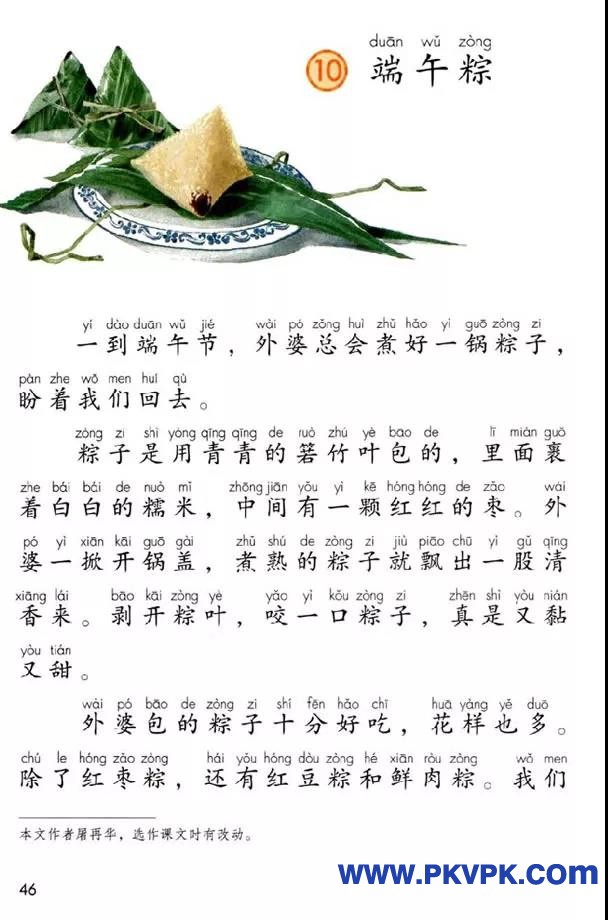 duān wǔ zòng
10 端午粽
yí dào duān wǔ jié wài pó zǒng huì zhǔ hǎo yì guō zòng zi
一到端午节，外婆总会煮好一锅粽子，
pàn zhe wǒ men huí qù
盼着我们回去。
zòng zi shì yòng qīng qīng de ruò zhú yè bāo de lǐ miàn guǒ
粽子是用青青的箬竹叶包的，里面裹
zhe bái bái de nuò mǐ zhōng jiān yǒu yì kē hóng hóng de zǎo wài
着白白的糯米，中间有一颗红红的枣。外
pó yì xiān kāi guō gài zhǔ shú de zòng zi jiù piāo chū yì gǔ qīng
婆一掀开锅盖，煮熟的粽子就飘出一股清
xiāng lái bāo kāi zòng yè yǎo yì kǒu zòng zi zhēn shì yòu nián
香来。剥开粽叶，咬一口粽子，真是又黏
yòu tián
又甜。
wài pó bāo de zòng zi shí fēn hǎo chī huā yàng yě duō
外婆包的粽子十分好吃，花样也多。
chú le hóng zǎo zòng hái yǒu hóng dòu zòng hé xiān ròu zòng wǒ men
除了红枣粽，还有红豆粽和鲜肉粽。我们
本文作者屠再华，选作课文时有改动。
46
www.PKVPK.com